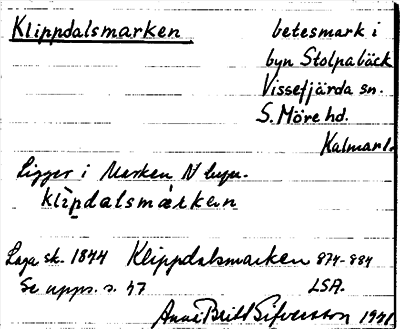 Klippdalsmarken betesmark i
byn Stolpabäck
Vissefjärda sn.
S. Möre hd.
Kalmarl.
Ligger i Marken N byn.
klìpdalsmárkan
Laga sk. 1844 Klippdalsmarken 874-884
Se upps. s. 47 LSA.
Anna Britt Sifversson